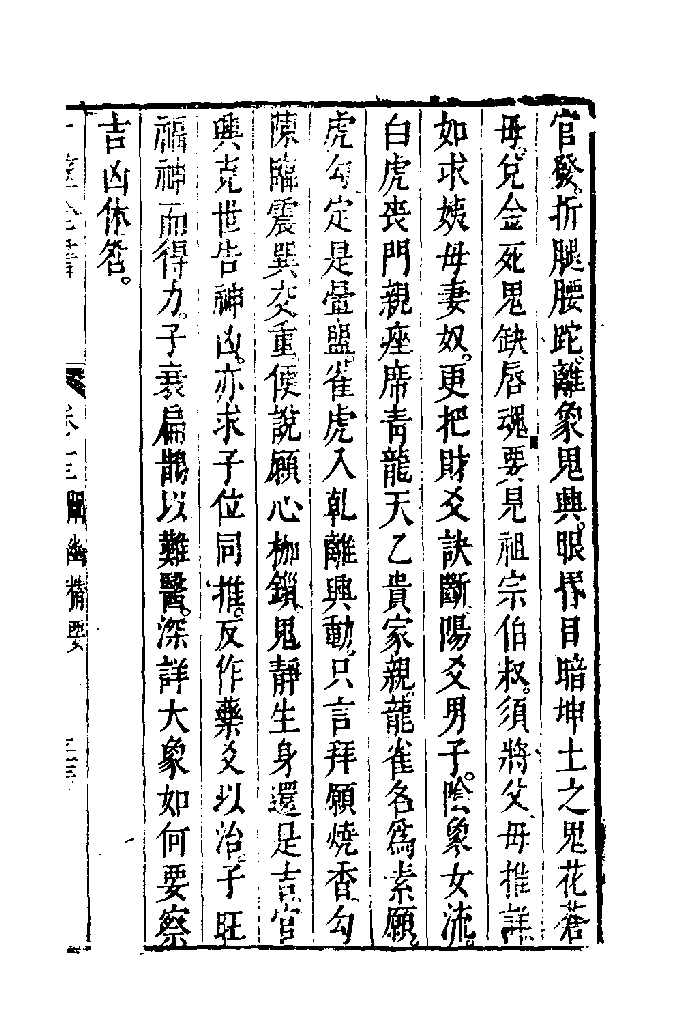 官發折腿腰跎離象鬼興眼昏目暗坤土之鬼花蒼
母兌金死鬼缺唇魂要見祖宗伯叔須將父母推詳
如求姨母妻奴更把財爻訣斷陽爻男子陰象女流
白虎丧門親座席青龍天乙貴家親龍雀名爲素願
虎勾定是疊盟雀虎入乹離興動只言拜願燒香勾
陳臨震巽交重便說願心枷鎖鬼靜生身還是吉官
興克世告神凶亦求子位同推反作藥爻以治子旺
福神而得力子衰扁鵲以難醫深詳大象如何要察
吉凶休咎
卷十三 闡幽精要